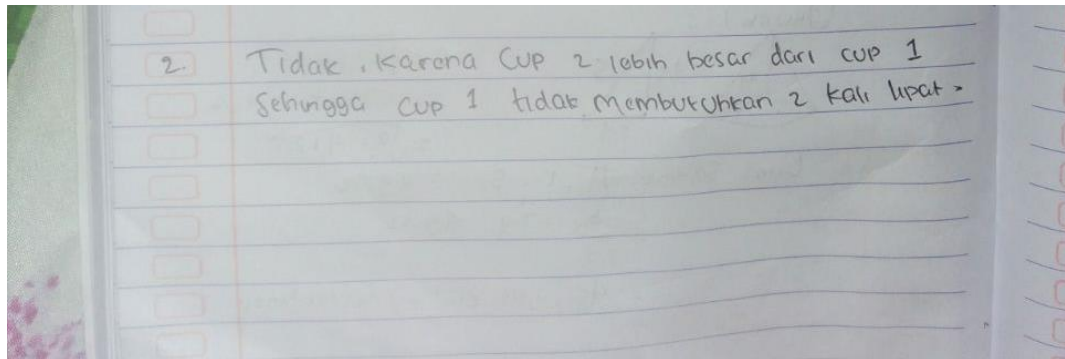 2. Tidak, Karena Cup 2 lebih besar dari cup 1
Sehingga cup 1 tidak membutuhkan 2 kali lipat.